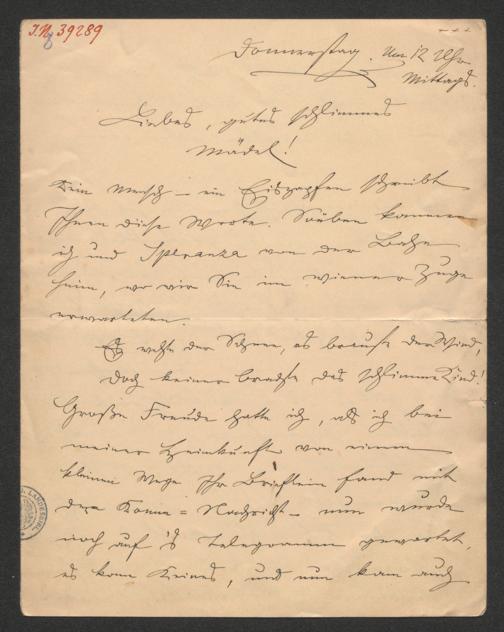 I.N. 39289
Donnerstag. Um 12 Uhr
Mittags.
Liebes, gutes schlimmes
Mädel!
Kein Mensch – ein Eiszapfen schreibt
Ihnen diese Worte. Soeben kommen
ich und Speranza von der Bahn
heim, wo wir Sie im wiener Zuge
erwarteten.
Es wehte der Schnee, es brauste der Wind,
doch keiner brachte das schlimme Kind!
Große Freude hatte ich, als ich bei
meiner Heimkunft von einem
kleinen Wege Ihr Brieflein fand mit
der Komm-Nachricht – nun wurde
noch auf's Telegramm gewartet,
es kam Keines, und nun kam auch